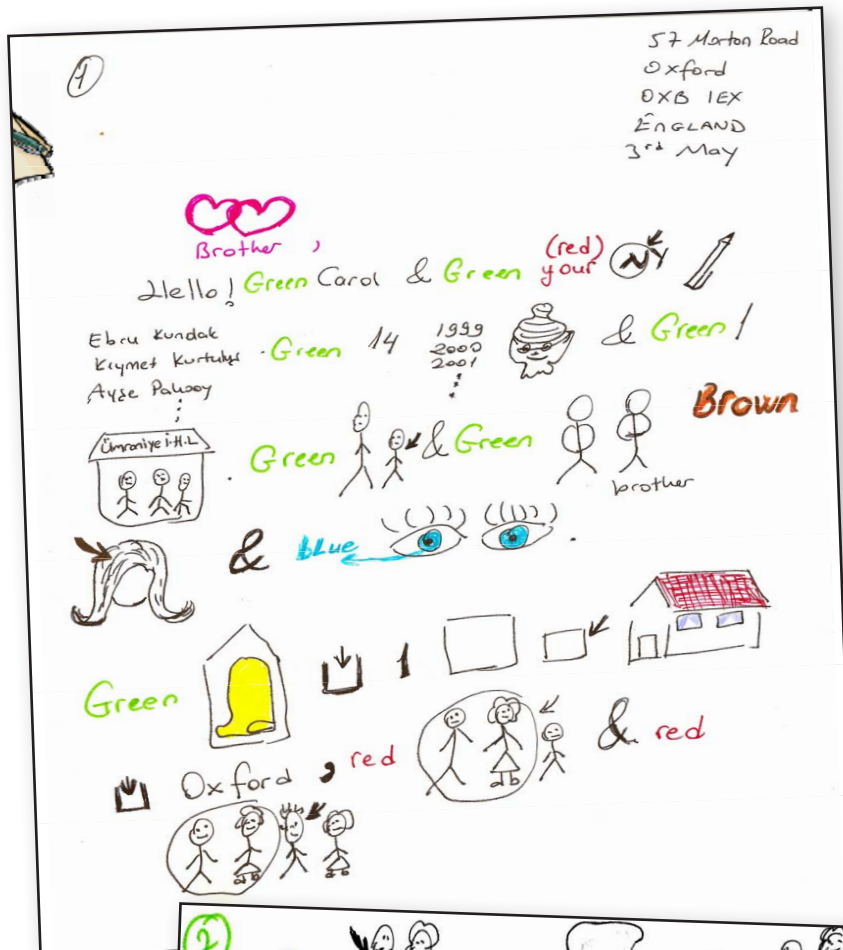 1
57 Morton Road
Oxford
OXB 1EX
ENGLAND
3rd May
Brother ,
Hello! Green Carol & Green (red) your NY
Ebru Kundak
Kıymet
Ayşe
. Green 14
1999
2000
2001
& Green 1
Ümraniye İ.H.L
. Green & Green
brother
Brown
& blue .
Green 1
Oxford , red & red
2